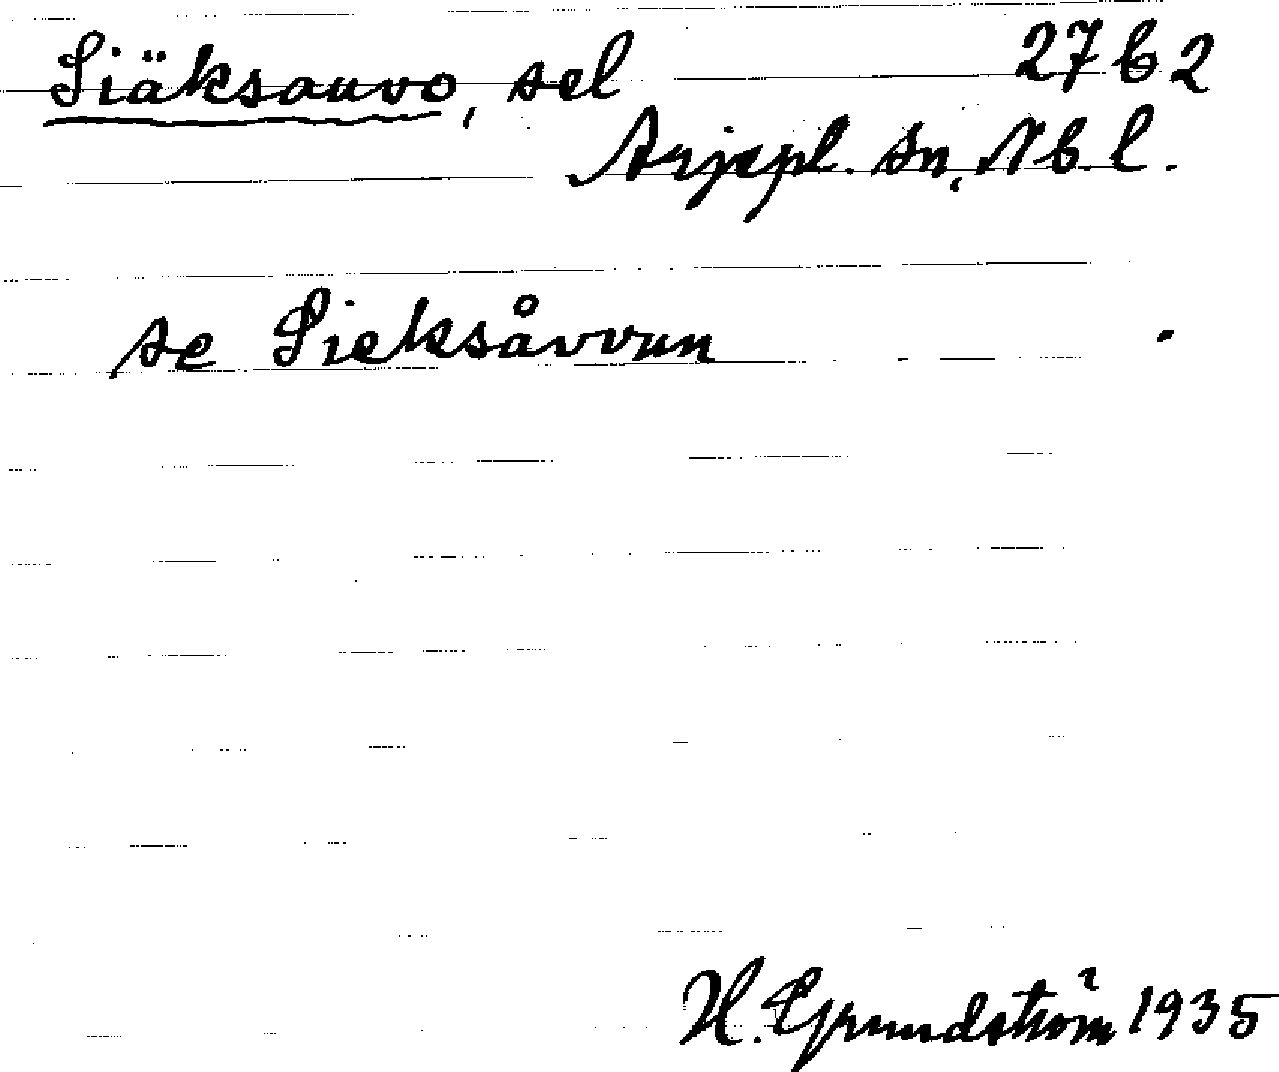 Siäksauvo, sel 27 b 2
Arjepl. sn, Nb. l.
se Sieksåvvun
H. Grundström 1935